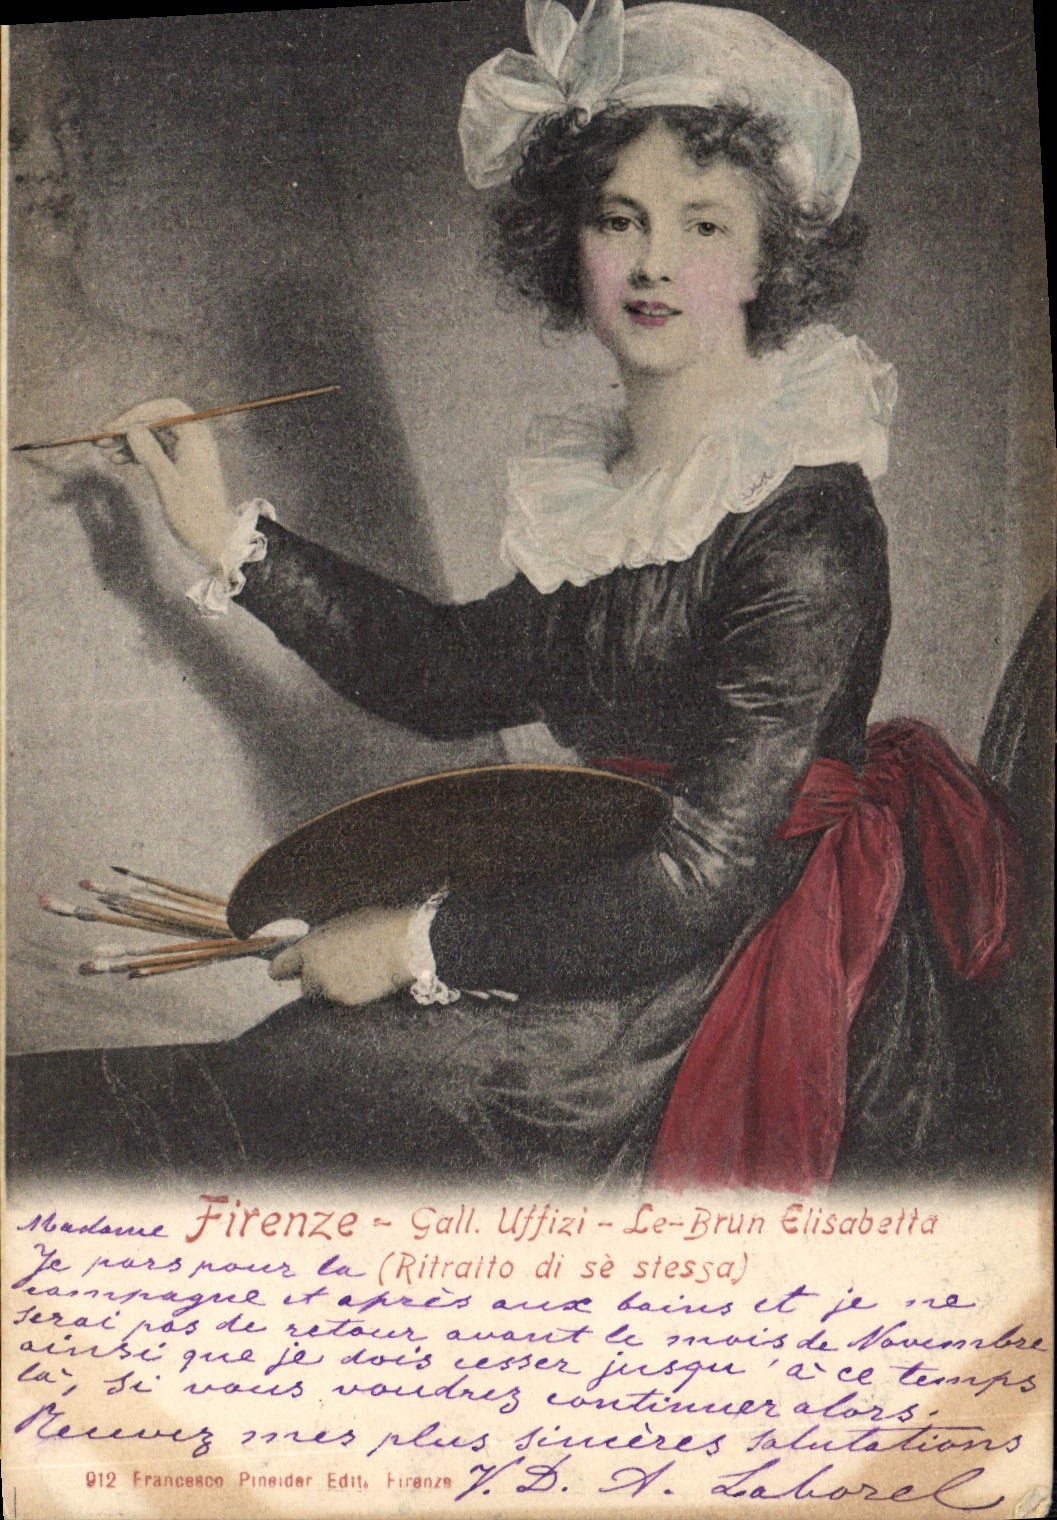 Firenze - Gall. Uffizi - Le-Brun Elisabetta
(Ritratto di sè stessa)
Madame
Je pars pour la
campagne et après aux bains et je ne
serai pas de retour avant le mois de Novembre
ainsi que je dois cesser jusqu'à ce temps
là, si vous voudrez continuer alors.
Recevez mes plus sincères salutations
V. D. A. Laborel
912 Francesco Pineider Edit. Firenze